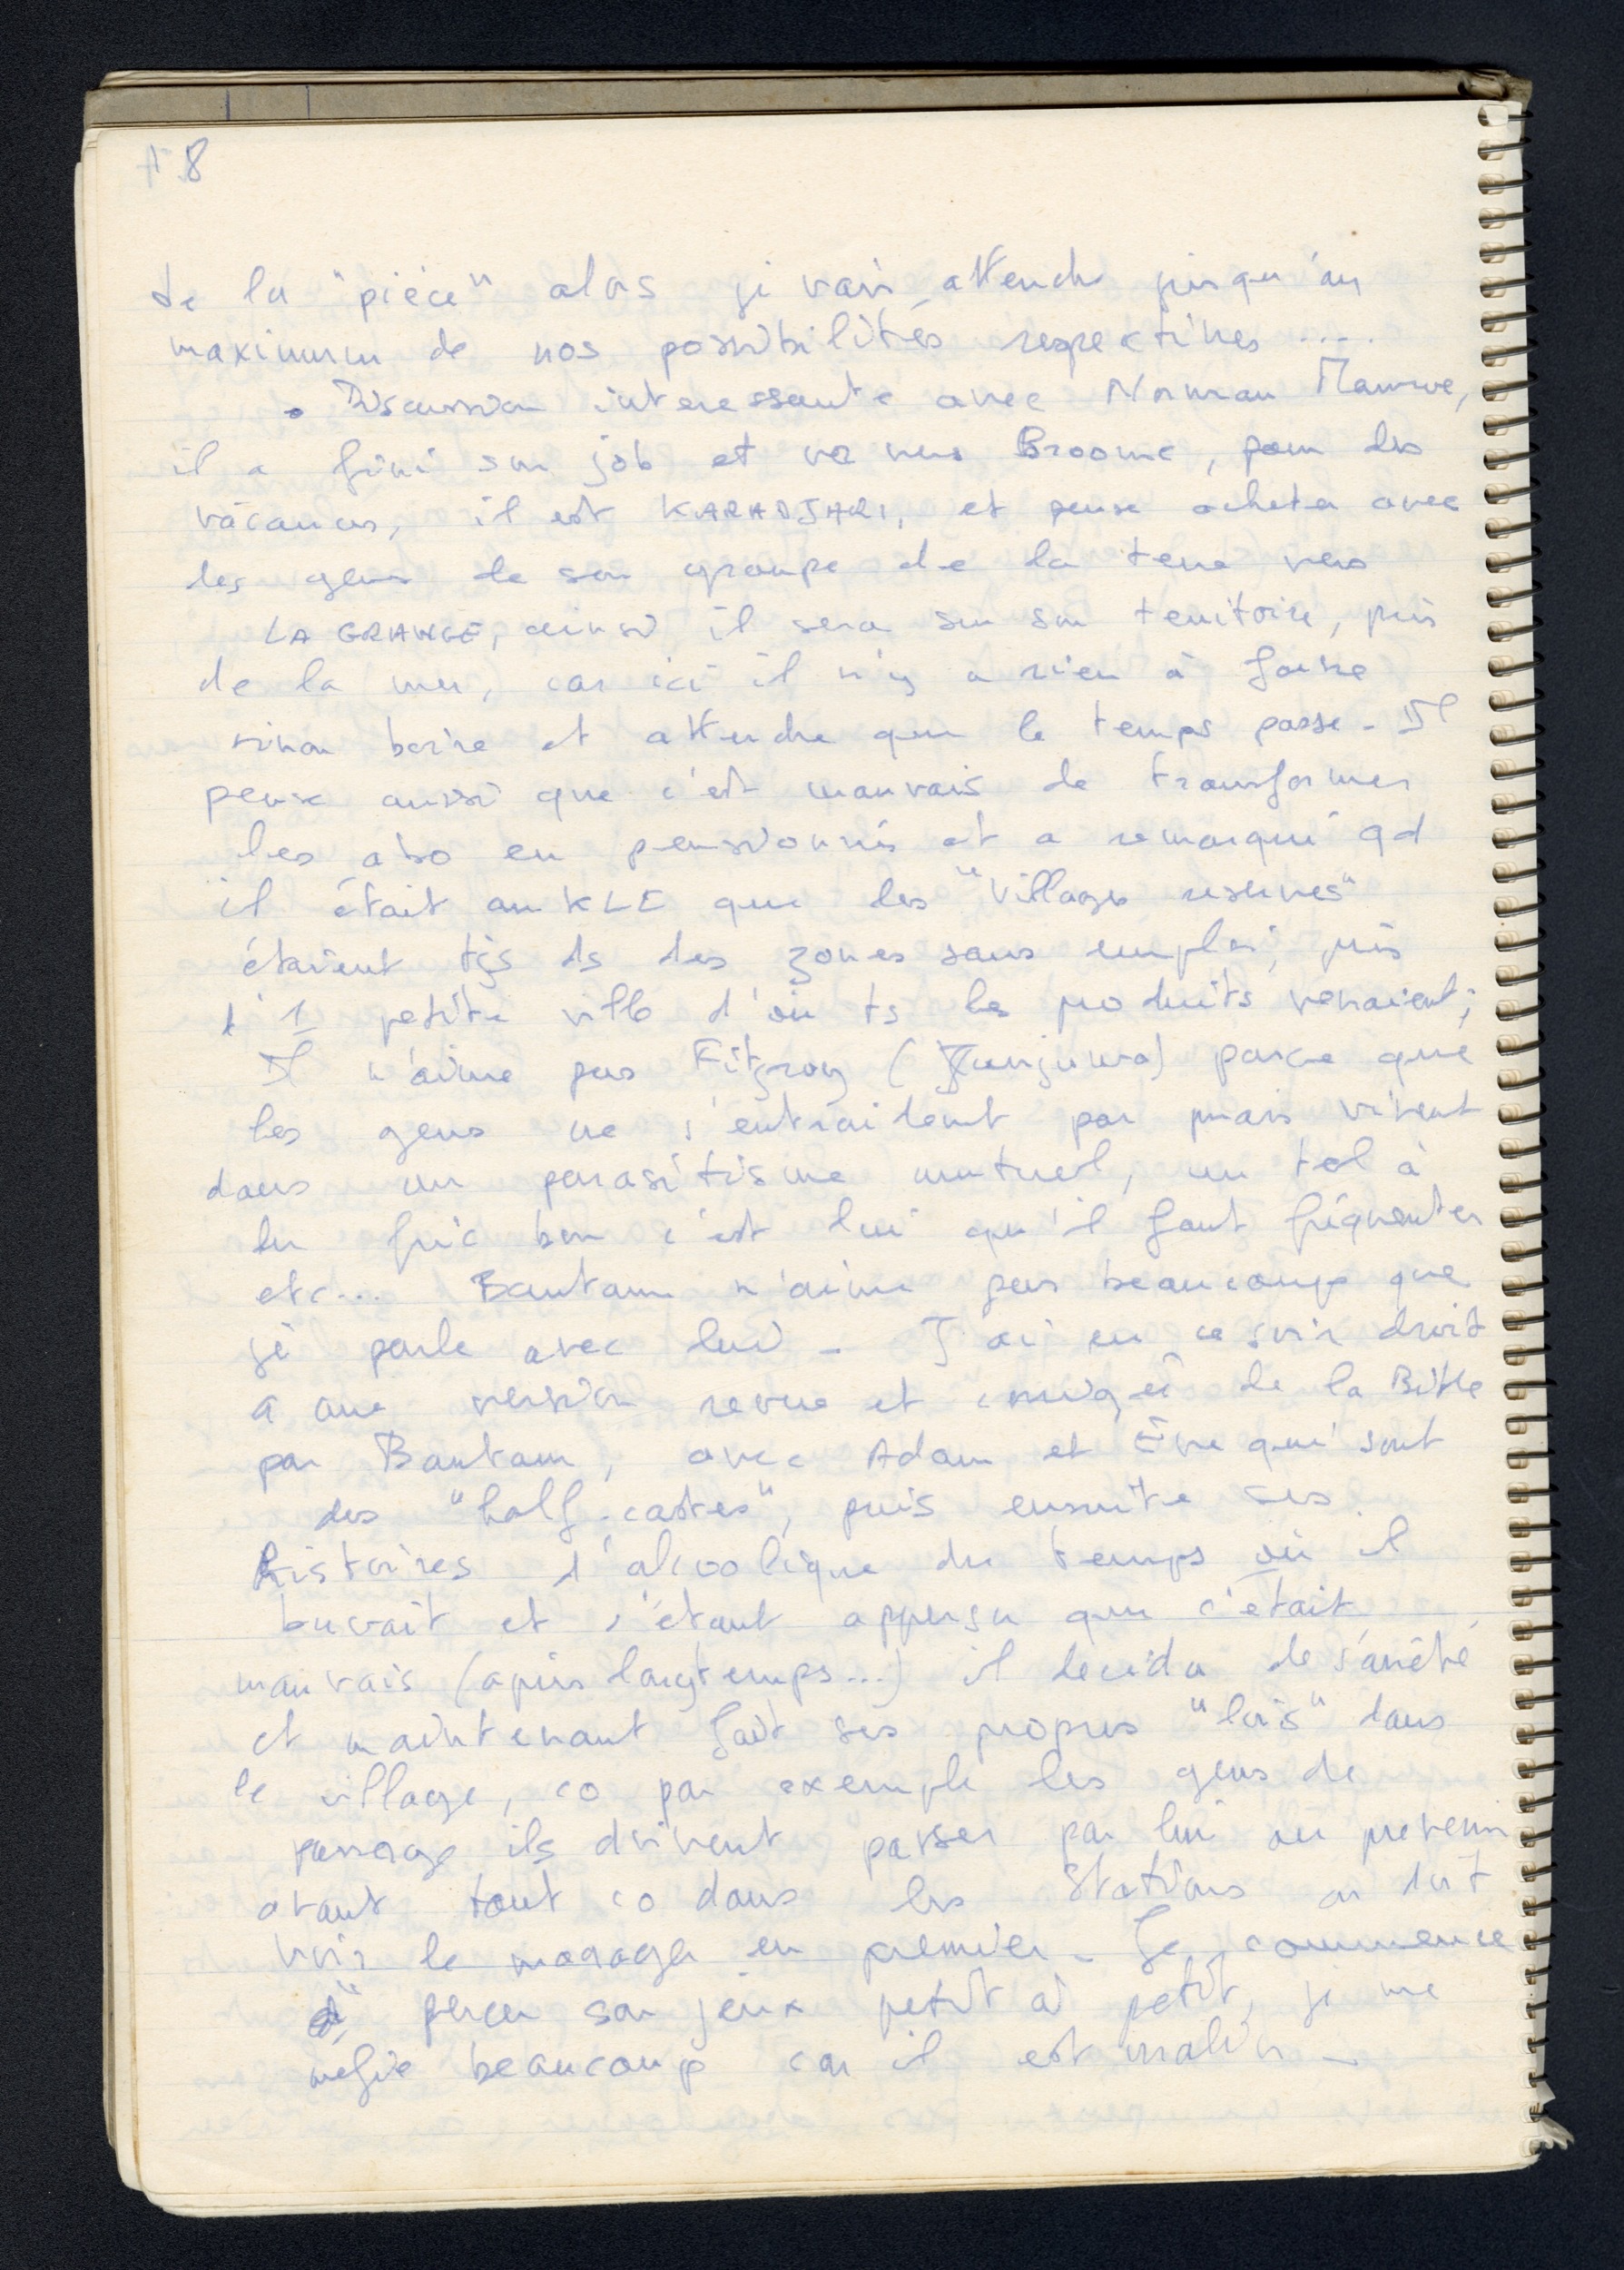 8
de la "pièce" alors je vais attendre jusqu'au
maximum de nos possibilités respectives ....
• Discussion interessante avec Norman
il a fini son job et va vers Broome, pour des
vacances, il est KARADJARI, et pense acheter avec
les gens de son groupe de la terre vers
LA GRANGE, ainsi il sera sur son territoire, près
de la mer, car ici il n'y a rien à faire
sinon boire et attendre que le temps passe - Il
pense aussi que c'est mauvais de transformer
les abo en pensionnés et a remarqué qd
il était au KLE que les "villages reserves"
étaient tjs ds des zones sans emploi, près
d'1 petite ville d'où ts les produits venaient;
Il n'aime pas Fitzroy (Junjuwa) parce que
les gens ne s'entraident pas mais vivent
dans un parasitisme mutuel, un tel à
du fric bon c'est lui qu'il faut fréquenter
etc... Bantam n'aime pas beaucoup que
je parle avec lui - J'ai eu ce soir droit
a une version revue et corrigée de la Bible
par Bantam, avec Adam et Ève qui sont
des "half-castes", puis ensuite ses
histoires d'alcoolique du temps où il
buvait et s'étant apperçu que c'était
mauvais (après longtemps...) il decida de s'arrêté
et maintenant fait ses propres "lois" dans
le village, co par exemple les gens de
passage ils doivent passer par lui ou prevenir
avant tout co dans les Stations on doit
voir le manager en premier - Je commence
à percer son jeux petit à petit, je me
mefie beaucoup car il est malin -